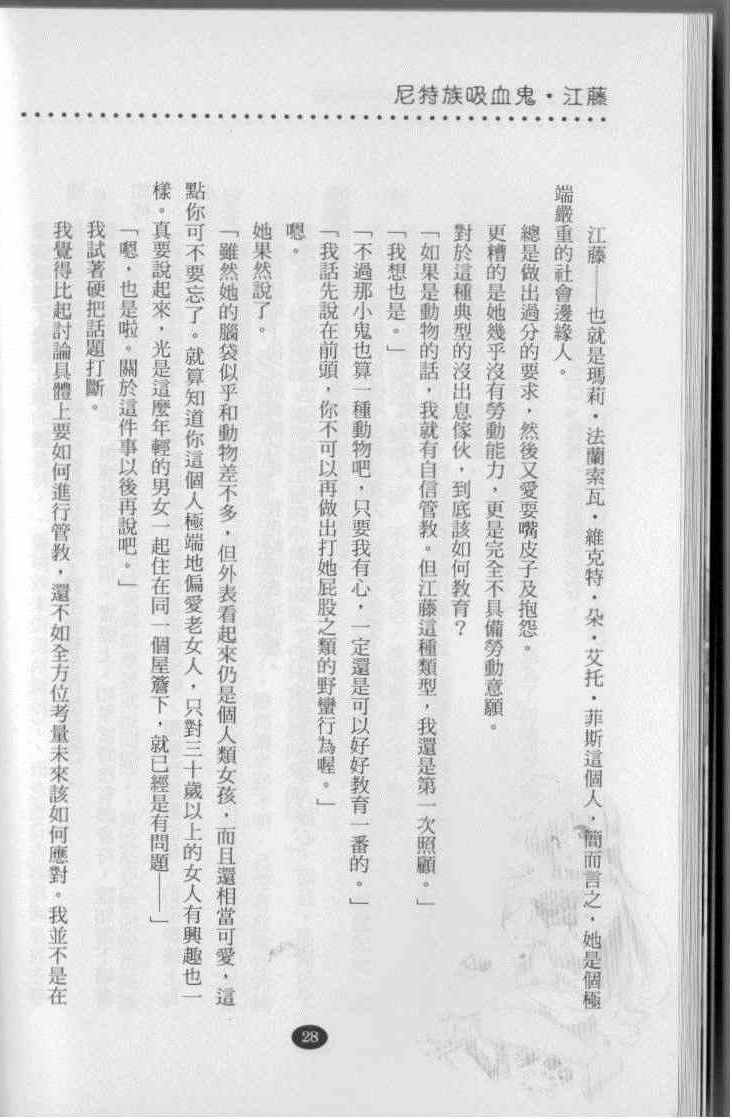 尼特族吸血鬼・江藤
江藤——也就是瑪莉・法蘭索瓦・維克特・朵・艾托・菲斯這個人，簡而言之，她是個極
端嚴重的社會邊緣人。
總是做出過分的要求，然後又愛耍嘴皮子及抱怨。
更糟的是她幾乎沒有勞動能力，更是完全不具備勞動意願。
對於這種典型的沒出息傢伙，到底該如何教育？
「如果是動物的話，我就有自信管教。但江藤這種類型，我還是第一次照顧。」
「我想也是。」
「不過那小鬼也算一種動物吧，只要我有心，一定還是可以好好教育一番的。」
「我話先說在前頭，你不可以再做出打她屁股之類的野蠻行為喔。」
嗯。
她果然說了。
「雖然她的腦袋似乎和動物差不多，但外表看起來仍是個人類女孩，而且還相當可愛，這
點你可不要忘了。就算知道你這個人極端地偏愛老女人，只對三十歲以上的女人有興趣也一
樣。真要說起來，光是這麼年輕的男女一起住在同一個屋簷下，就已經是有問題——」
「嗯，也是啦。關於這件事以後再說吧。」
我試著硬把話題打斷。
我覺得比起討論具體上要如何進行管教，還不如全方位考量未來該如何應對。我並不是在
28